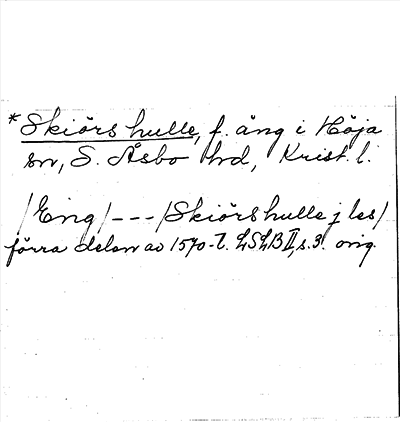 *Skiörs hulle, f. äng i Höja
sn, S. Åsbo hd, Krist. l.
/Eng/---/Skiörs hulle j les/
förra delen av 1570-t. LSLB II, s. 3. orig.